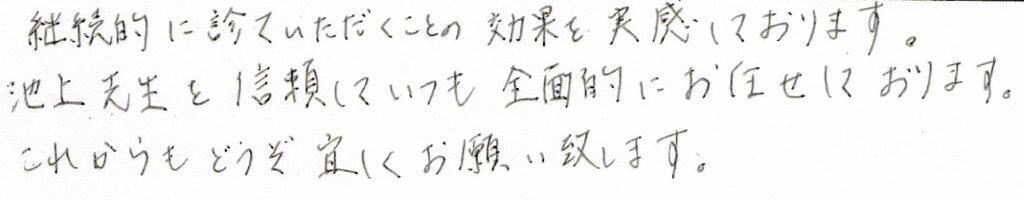 継続的に診ていただくことの効果を実感しております。
池上先生を信頼していつも全面的にお任せしております。
これからもどうぞ宜しくお願い致します。